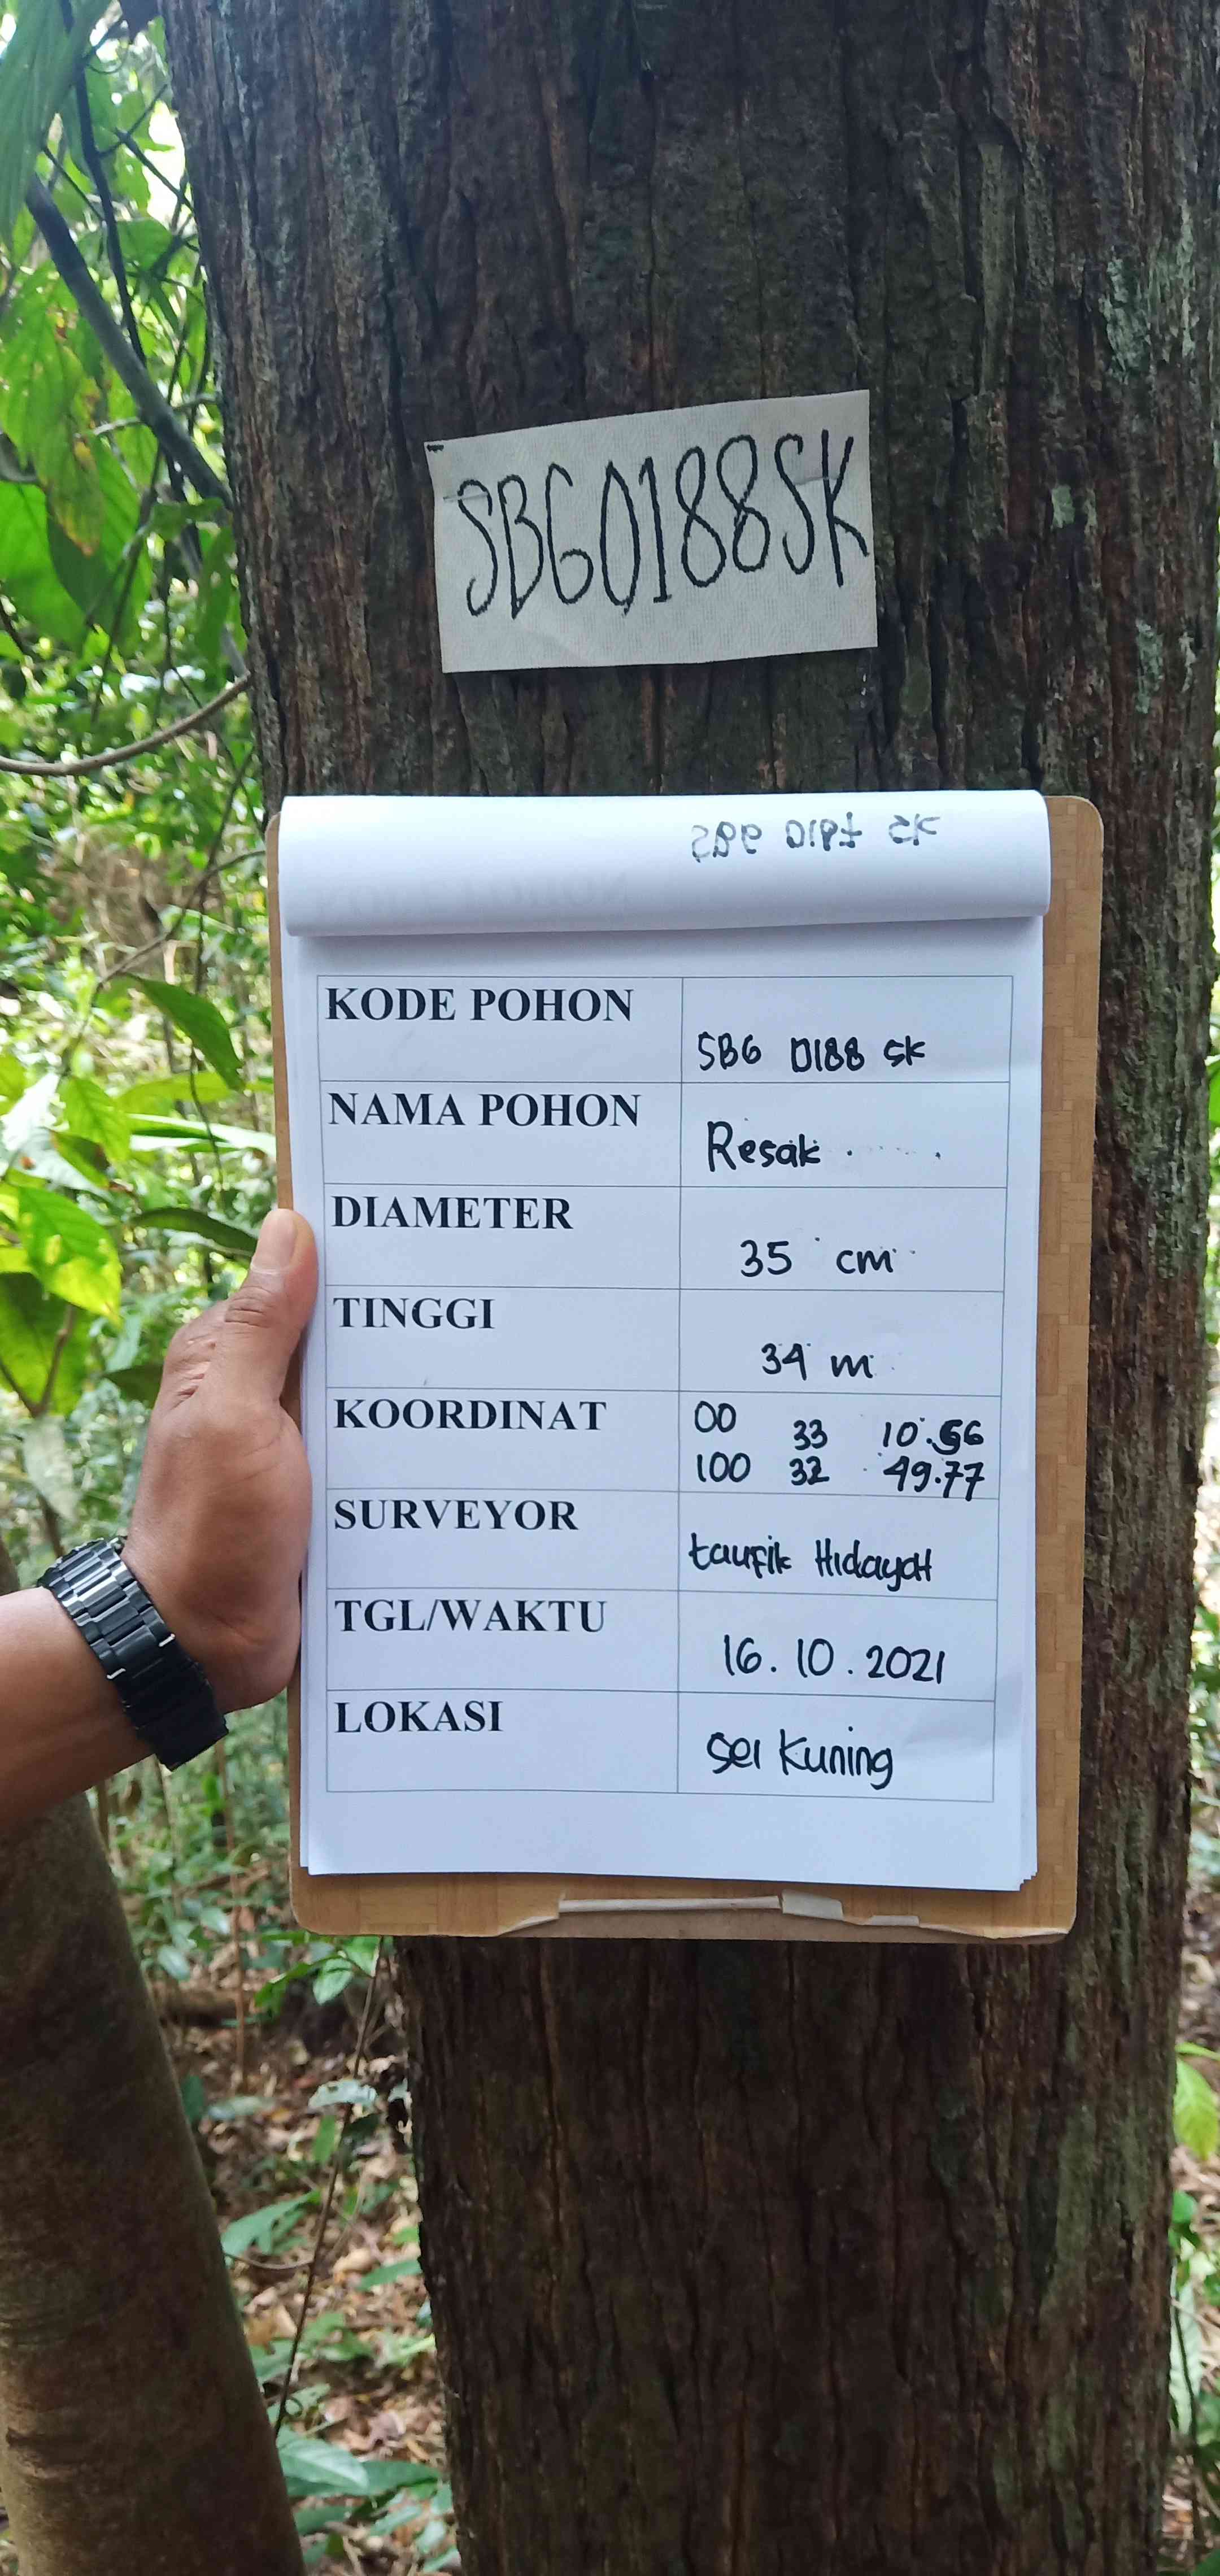 SBG0188SK
KODE POHON
SBG 0188 SK
NAMA POHON
Resak
DIAMETER
35 cm
TINGGI
34 m
KOORDINAT
00 33 10.56
100 32 49.77
SURVEYOR
taufik Hidayat
TGL/WAKTU
16.10.2021
LOKASI
Sei Kuning